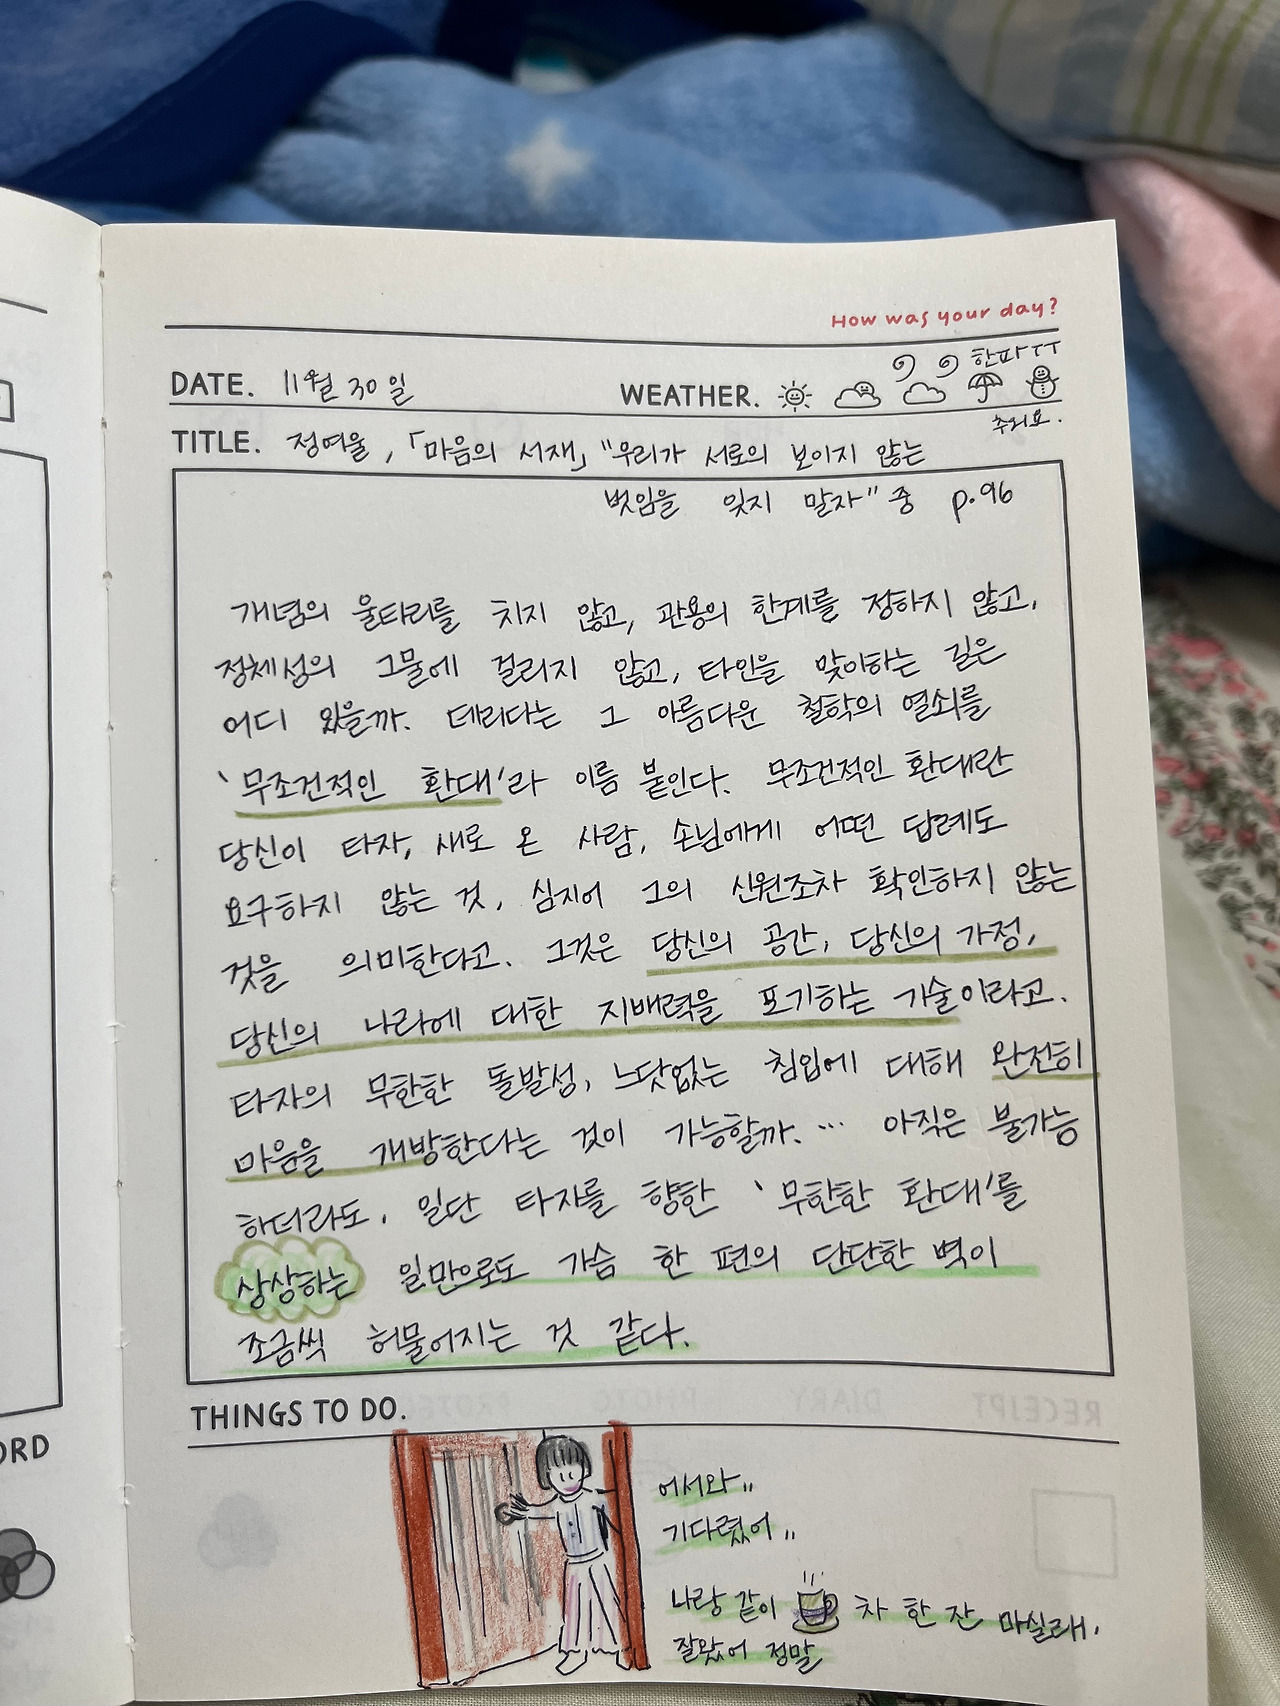 How was your day?
한파ㅜㅜ
DATE. 11월 30일 WEATHER.
추워요.
TITLE. 정여울, 「마음의 서재」 "우리가 서로의 보이지 않는
벗임을 잊지 말자" 중 p.96
개념의 울타리를 치지 않고, 관용의 한계를 정하지 않고,
정체성의 그물에 걸리지 않고, 타인을 맞이하는 길은
어디 있을까. 데리다는 그 아름다운 철학의 열쇠를
'무조건적인 환대'라 이름 붙인다. 무조건적인 환대란
당신이 타자, 새로 온 사람, 손님에게 어떤 답례도
요구하지 않는 것, 심지어 그의 신원조차 확인하지 않는
것을 의미한다고. 그것은 당신의 공간, 당신의 가정,
당신의 나라에 대한 지배력을 포기하는 기술이라고.
타자의 무한한 돌발성, 느닷없는 침입에 대해 완전히
마음을 개방한다는 것이 가능할까. … 아직은 불가능
하더라도, 일단 타자를 향한 '무한한 환대'를
상상하는 일만으로도 가슴 한 편의 단단한 벽이
조금씩 허물어지는 것 같다.
RECEIPT DIARY PHOTO
THINGS TO DO.
ORD
어서와..
기다렸어..
나랑 같이 차 한 잔 마실래.
잘왔어 정말